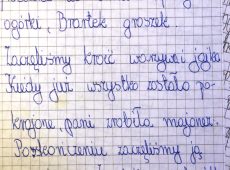 ogórki, Brartek groszek.
Zaczęliśmy kroić warzywa i jajka
Kiedy już wszystko zostało po-
krojone, pani zrobiła majonez.
Poskończeniu zaczęliśmy ją